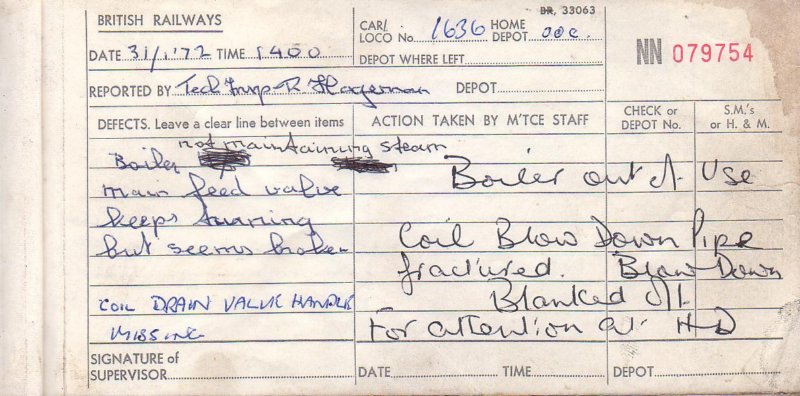 BR. 33063
BRITISH RAILWAYS
DATE 31/1/72 TIME 1400
CAR/ LOCO No. 1636 HOME DEPOT OOC.
DEPOT WHERE LEFT
NN 079754
REPORTED BY Tech Insp R Hagerman DEPOT
DEFECTS. Leave a clear line between items
ACTION TAKEN BY M'TCE STAFF
CHECK or DEPOT No.
S.M.'s or H. & M.
not maintaining steam
Boiler
main feed valve
keeps turning
but seems broken
COIL DRAIN VALVE HANDLE
MISSING
Boiler out of Use
Coil Blow Down Pipe
fractured. Blow Down
Blanked off.
For attention at HD
SIGNATURE of SUPERVISOR
DATE TIME DEPOT